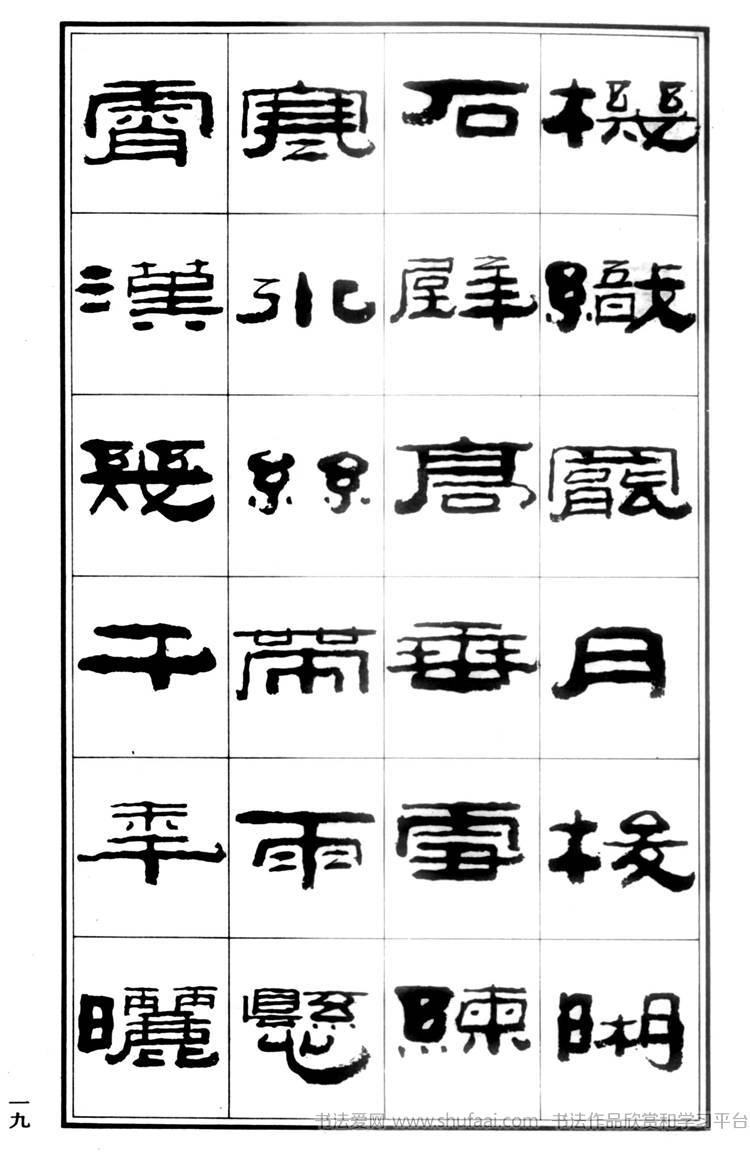 機織罷月梭閑
石壁高垂雪練
寒冰絲帶雨懸
霄漢幾千年曬
一九
书法爱网 www.shufaai.com 书法作品欣赏和学习平台